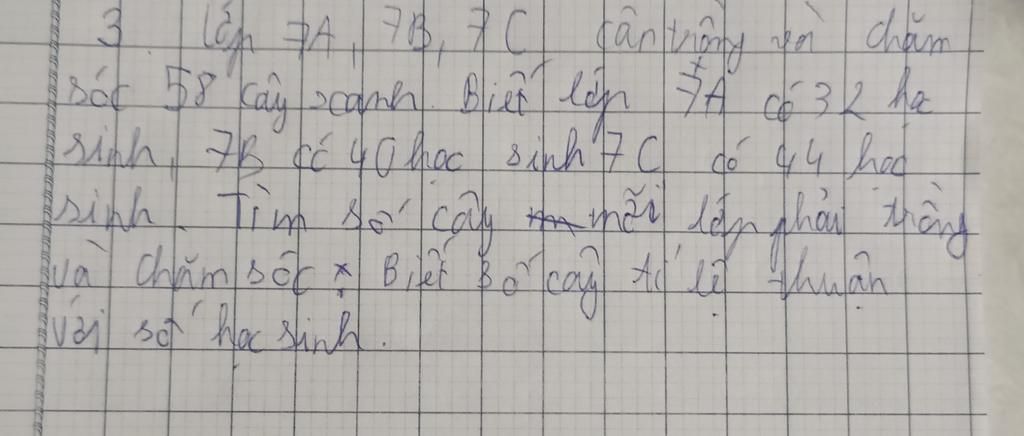 3 lớp 7A, 7B, 7C cần trồng và chăm
sóc 58 cây xanh. Biết lớp 7A có 32 hc
sinh, 7B có 40 học sinh 7C có 44 học
sinh. Tìm số cây mỗi lớp phải trồng
và chăm sóc. Biết số cây tỉ lệ thuận
với số học sinh.